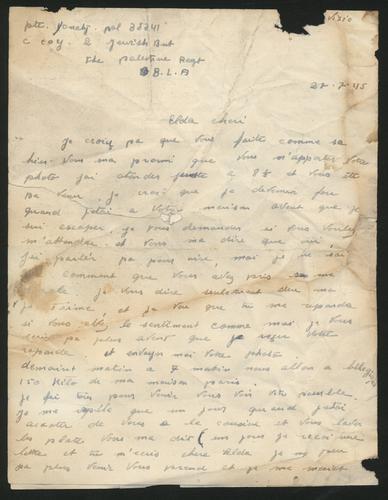 pte. Yonatz pal 38241
C coy 2 Jewich But
the palestine Regt
B.L.A
27.7.45
Elda cheri
Je croix pa que vous faite comme sa
hier. Vous ma promi que vous m'apportez votre
photo j'ai atendes juste a 8 H et vous ete
pa venu, je croit que je devenu fou
quand j'etai a votre maison avent que je
sui escaper, je vous demandais si vous voulez
m'attendre et vous ma dire que oui,
j'ai parler pa pour rire, moi je ne sai
comment que vous avez pris
je vous dire seulement deu ma
je t'aime, et je veu que tu me reponde
si vous avez le sentiment comme moi je vous
pa plus avent que je reçoi votre
reponde et envoyer moi votre photo
demaint matin a 7 matin nous allon a belgique
150 kilo de ma maison paris.
je fai tous pour venir vous voir vite possible.
Je me rapelle que un jour quand j'etai
acoter de vous a la cousine et vous lavez
les plate vous ma dit ( un jour je recoi une
lettre et tu m'ecris chere Elda je ne peu
pa plus venir vous prend et je me marier